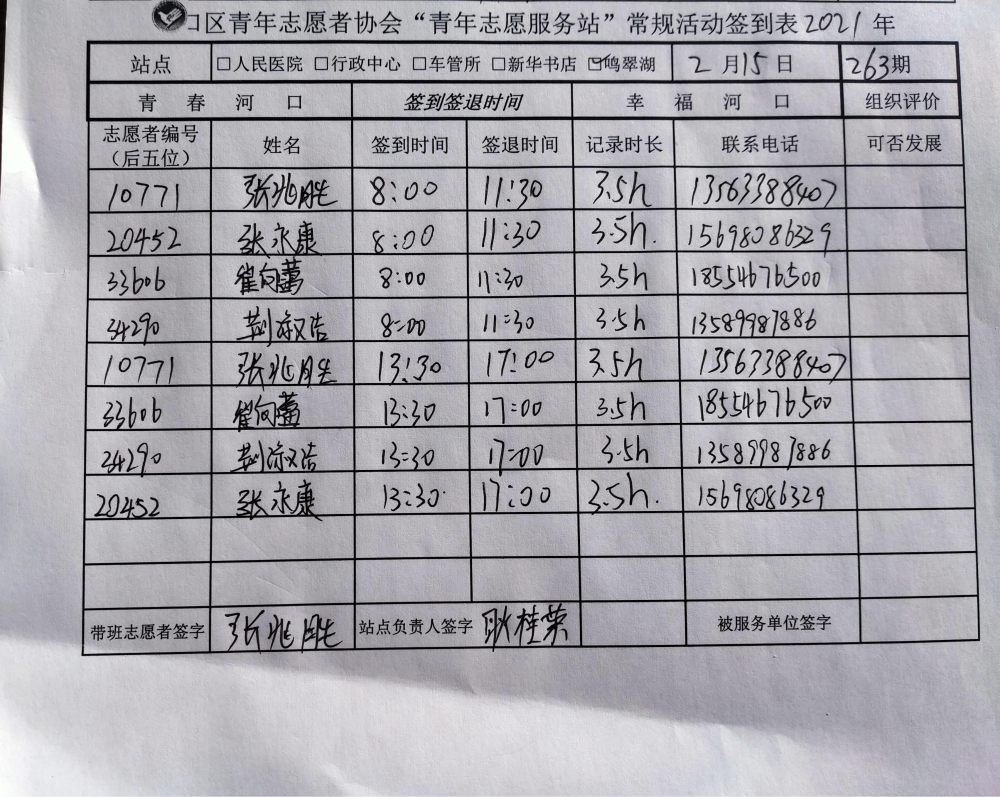 口区青年志愿者协会“青年志愿服务站”常规活动签到表2021年
站点 □人民医院 □行政中心 □车管所 □新华书店 ☑鸣翠湖 2月15日 263期
青春河口 签到签退时间 幸福河口 组织评价
志愿者编号（后五位） 姓名 签到时间 签退时间 记录时长 联系电话 可否发展
10771 张兆胜 8:00 11:30 3.5h 13563388407
20452 张永康 8:00 11:30 3.5h. 15698086329
33606 崔向蕾 8:00 11:30 3.5h 18554676500
34290 8:00 11:30 3.5h 13589987886
10771 张兆胜 13:30 17:00 3.5h 13563388407
33606 崔向蕾 13:30 17:00 3.5h 18554676500
34290 13:30 17:00 3.5h 13589987886
20452 张永康 13:30 17:00 3.5h. 15698086329
带班志愿者签字 张兆胜 站点负责人签字 耿桂荣 被服务单位签字